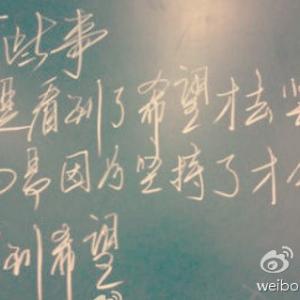 些事
是看到了希望才去坚
因为坚持了才
到希望
weibo